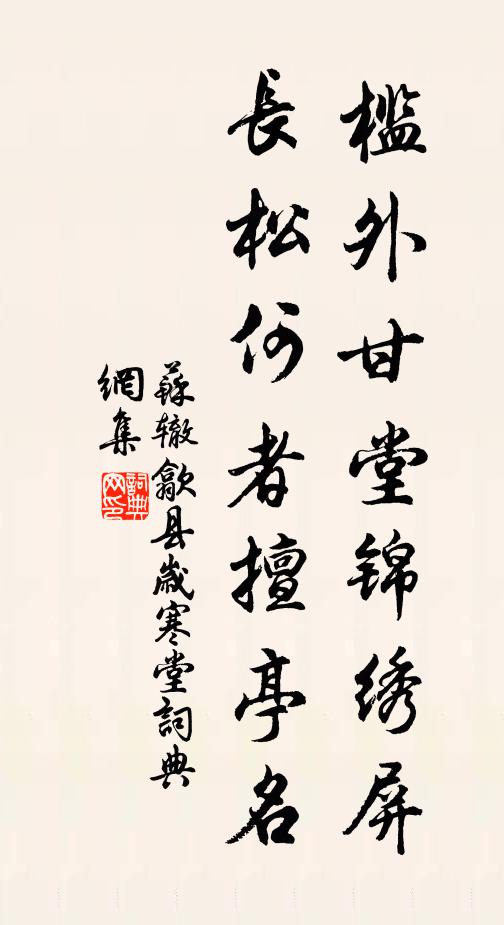 檻外甘堂锦绣屏
長松何者擅亭名
蘇辙歙县歲寒堂詞典
網集
詞典
网印